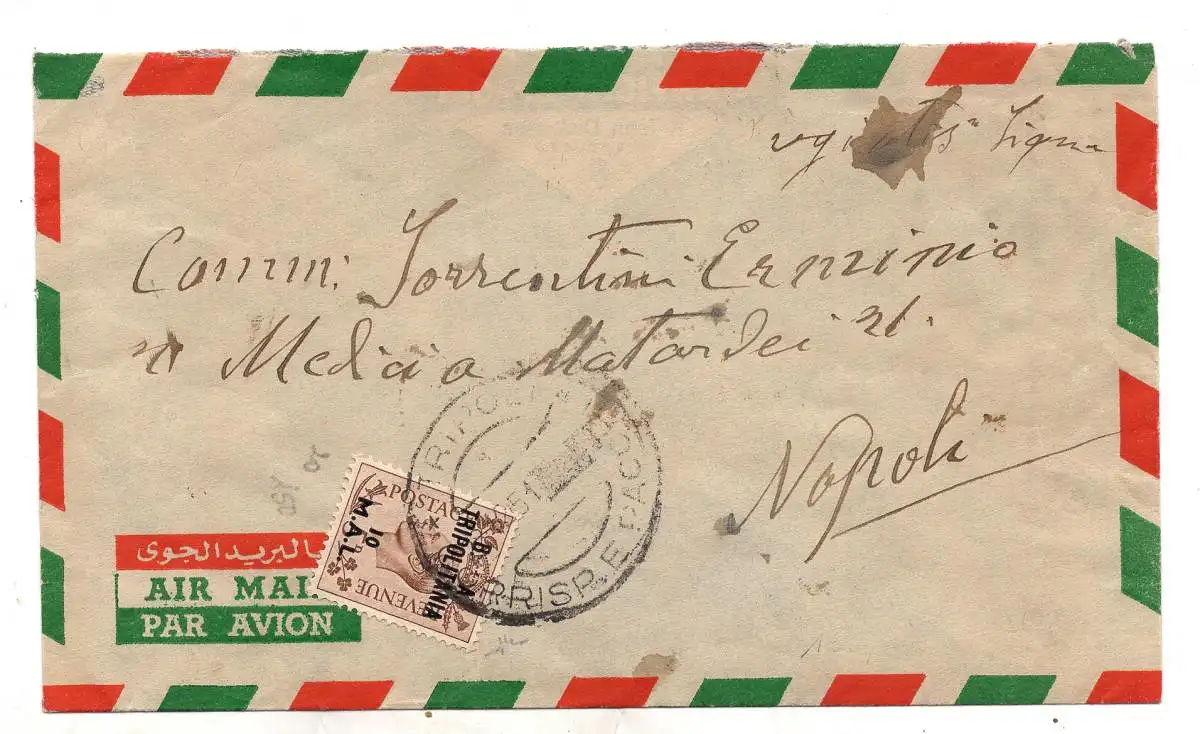 Comm: Sorrentini Erminio
Matardei 21.
Napoli
بالبريد الجوى
AIR MAIL
PAR AVION
POSTAGE
REVENUE
B. A.
TRIPOLITANIA
10
M.A.L.
TRIPOLI
51
CORRISP. E PACCHI